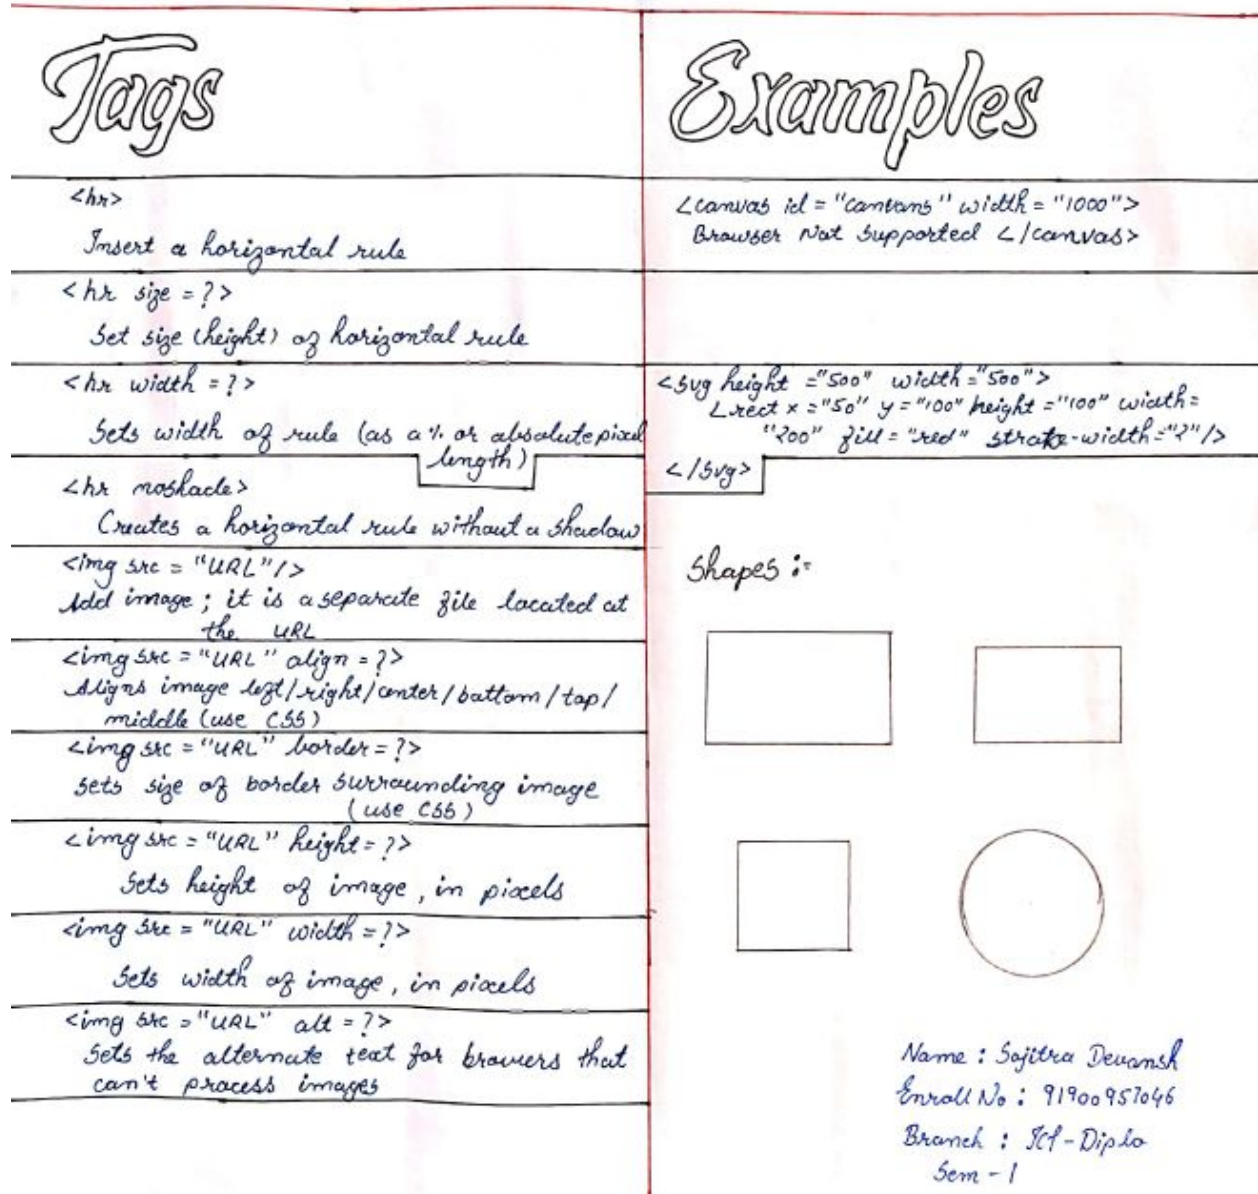 Tags
<hr>
Insert a horizontal rule
<hr size = ?>
Set size (height) of horizontal rule
<hr width = ?>
Sets width of rule (as a % or absolute pixel
length)
<hr noshade>
Creates a horizontal rule without a shadow
<img src = "URL"/>
Add image ; it is a separate file located at
the URL
<img src = "URL" align = ?>
Aligns image left/right/center/bottom/top/
middle (use CSS)
<img src = "URL" border = ?>
Sets size of border surrounding image
(use CSS)
<img src = "URL" height = ?>
Sets height of image, in pixels
<img src = "URL" width = ?>
Sets width of image, in pixels
<img src = "URL" alt = ?>
Sets the alternate text for browers that
can't process images
Examples
<canvas id = "canvans" width = "1000">
Browser Not Supported </canvas>
<svg height = "500" width = "500">
<rect x = "50" y = "100" height = "100" width =
"200" fill = "red" stroke-width = "2"/>
</svg>
Shapes :-
Name : Sojitra Devansh
Enroll No : 91900957046
Branch : ICT - Diplo
Sem - 1